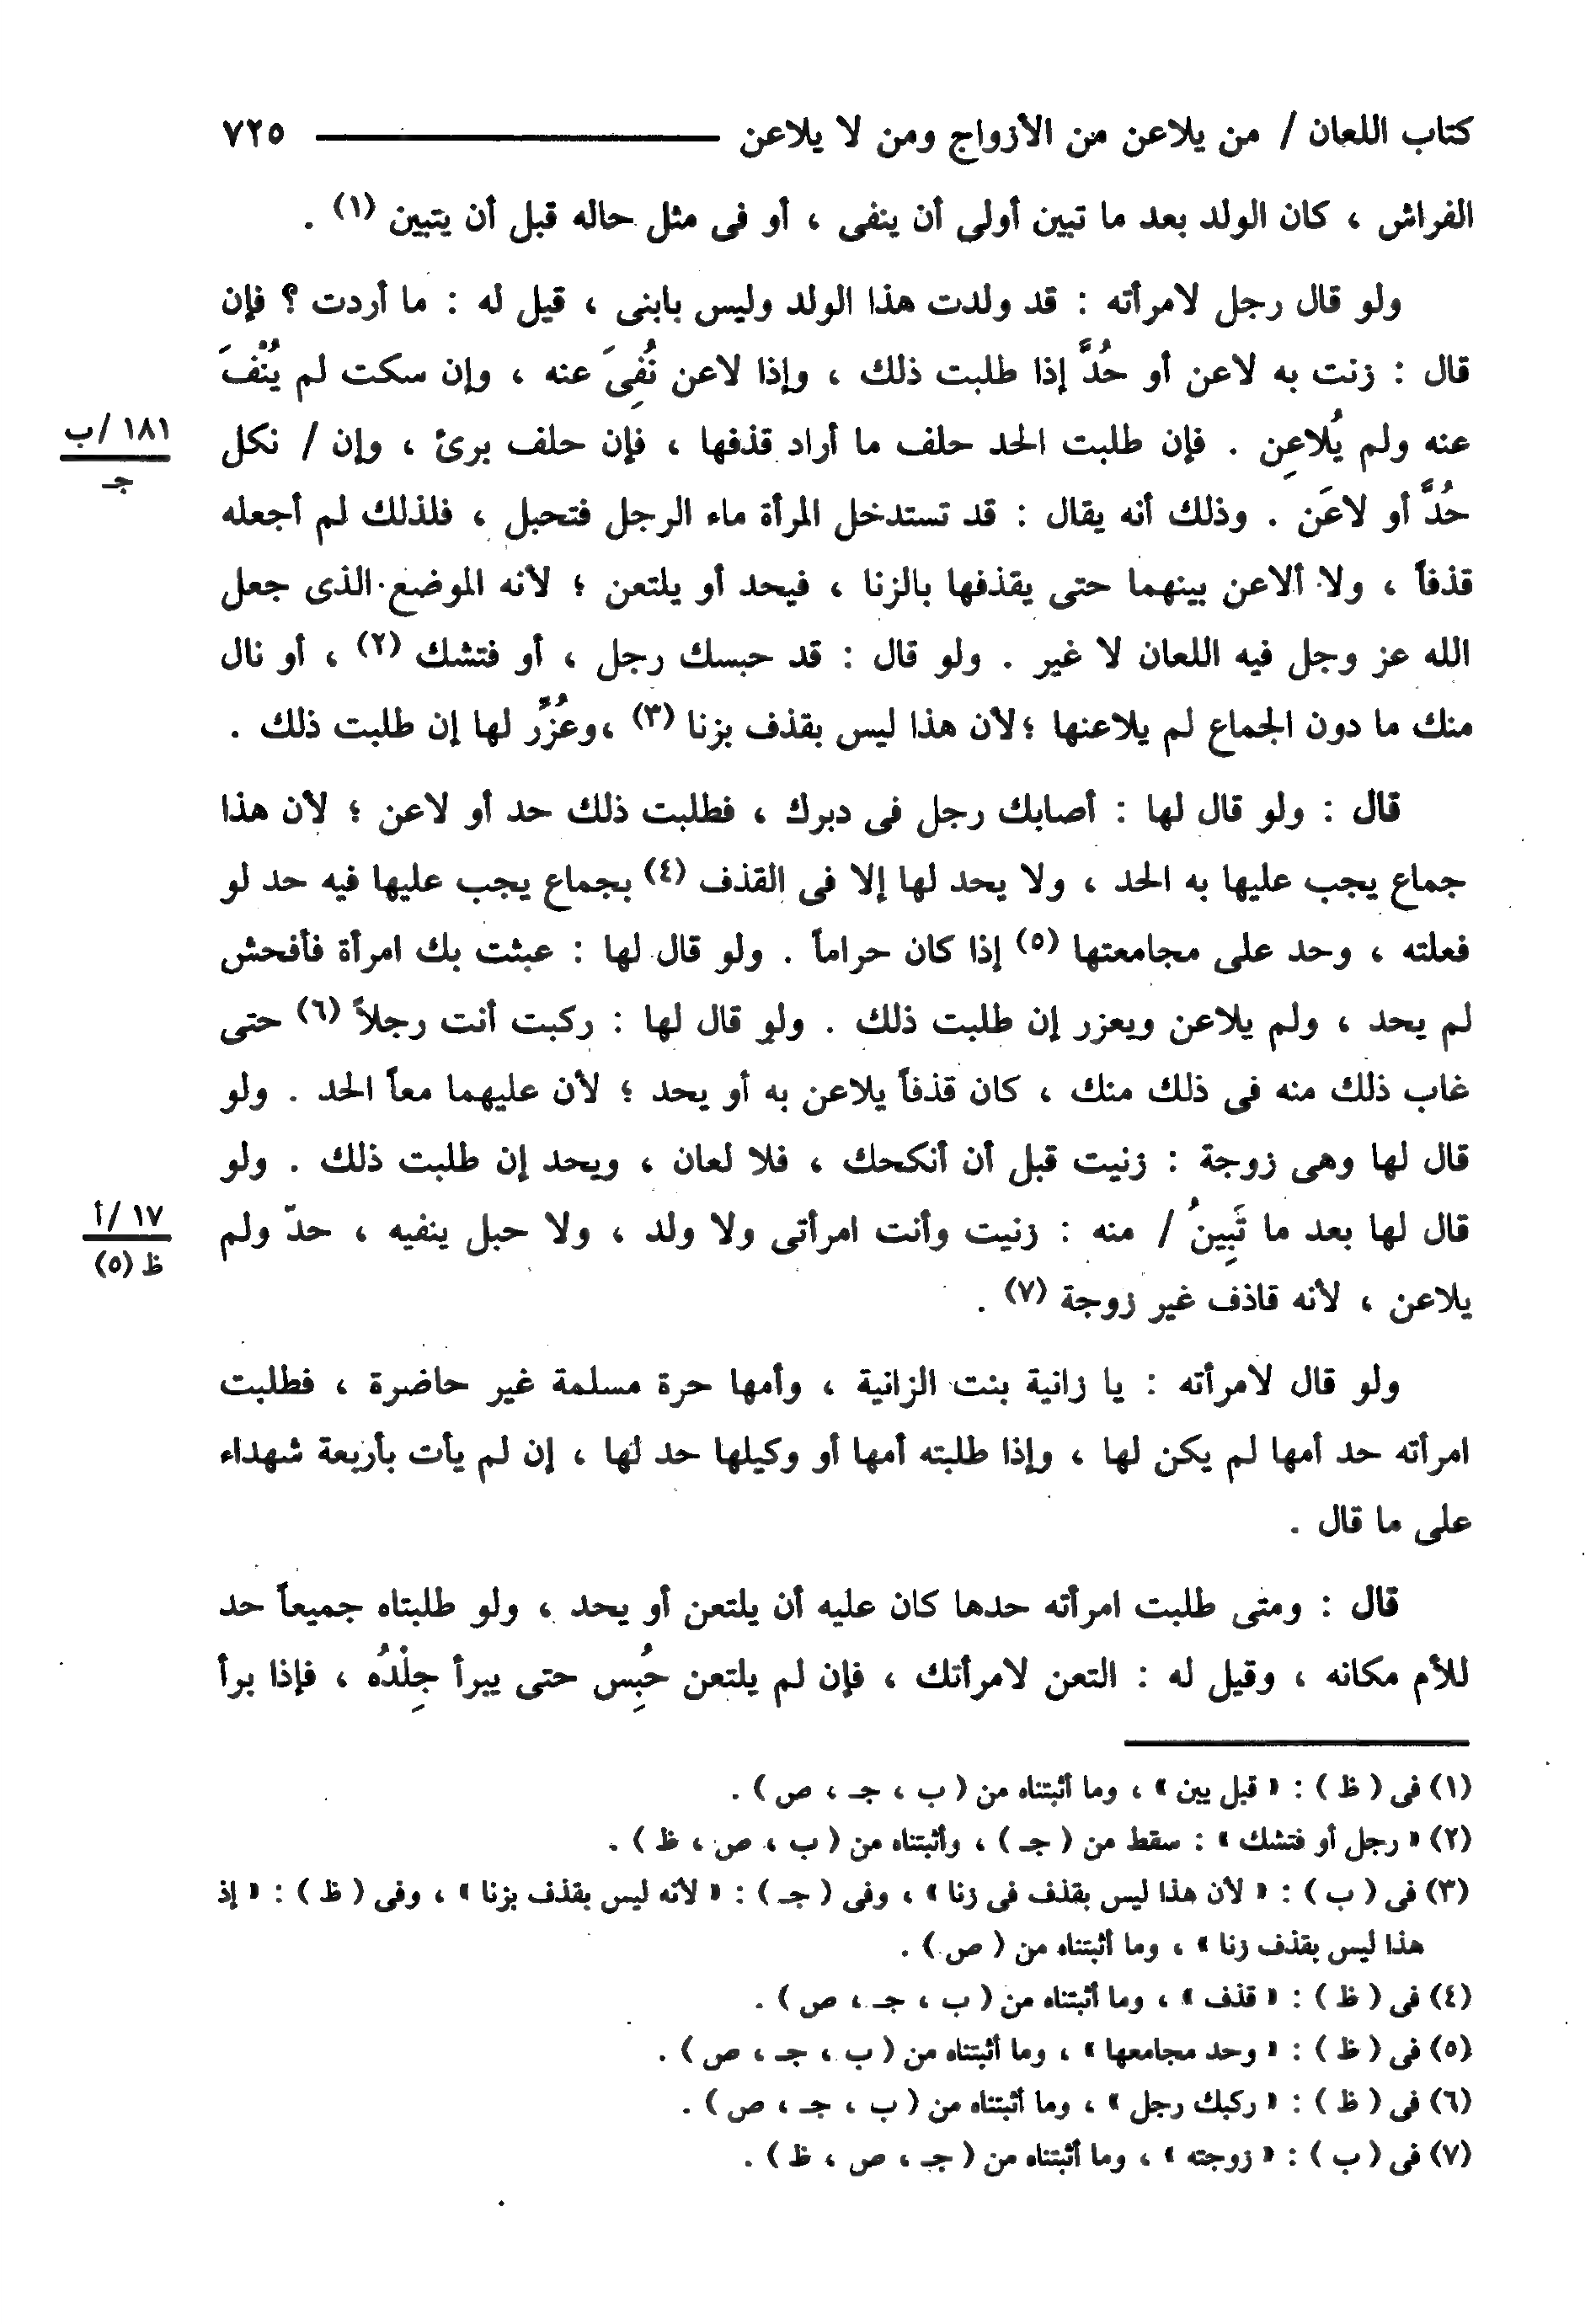 كتاب اللعان / من يلاعن من الأزواج ومن لا يلاعن ـــــــــ ٧٢٥
الفراش ، كان الولد بعد ما تبين أولى أن ينفى ، أو فى مثل حاله قبل أن يتبين (١) .
ولو قال رجل لامرأته : قد ولدت هذا الولد وليس بابنى ، قيل له : ما أردت ؟ فإن
قال : زنت به لاعن أو حُدَّ إذا طلبت ذلك ، وإذا لاعن نُفِىَ عنه ، وإن سكت لم يُنْفَ
عنه ولم يُلاعِن . فإن طلبت الحد حلف ما أراد قذفها ، فإن حلف برئ ، وإن / نكل
١٨١ / ب
جـ
حُدَّ أو لاعَن . وذلك أنه يقال : قد تستدخل المرأة ماء الرجل فتحبل ، فلذلك لم أجعله
قذفاً ، ولا ألاعن بينهما حتى يقذفها بالزنا ، فيحد أو يلتعن ؛ لأنه الموضع الذى جعل
الله عز وجل فيه اللعان لا غير . ولو قال : قد حبسك رجل ، أو فتشك (٢) ، أو نال
منك ما دون الجماع لم يلاعنها ؛لأن هذا ليس بقذف بزنا (٣) ،وعُزِّر لها إن طلبت ذلك .
قال : ولو قال لها : أصابك رجل فى دبرك ، فطلبت ذلك حد أو لاعن ؛ لأن هذا
جماع يجب عليها به الحد ، ولا يحد لها إلا فى القذف (٤) بجماع يجب عليها فيه حد لو
فعلته ، وحد على مجامعتها (٥) إذا كان حراماً . ولو قال لها : عبثت بك امرأة فأفحش
لم يحد ، ولم يلاعن ويعزر إن طلبت ذلك . ولو قال لها : ركبت أنت رجلاً (٦) حتى
غاب ذلك منه فى ذلك منك ، كان قذفاً يلاعن به أو يحد ؛ لأن عليهما معاً الحد . ولو
قال لها وهى زوجة : زنيت قبل أن أنكحك ، فلا لعان ، ويحد إن طلبت ذلك . ولو
قال لها بعد ما تَبِينُ / منه : زنيت وأنت امرأتى ولا ولد ، ولا حبل ينفيه ، حدّ ولم
١٧ / أ
ظ (٥)
يلاعن ، لأنه قاذف غير زوجة (٧) .
ولو قال لامرأته : يا زانية بنت الزانية ، وأمها حرة مسلمة غير حاضرة ، فطلبت
امرأته حد أمها لم يكن لها ، وإذا طلبته أمها أو وكيلها حد لها ، إن لم يأت بأربعة شهداء
على ما قال .
قال : ومتى طلبت امرأته حدها كان عليه أن يلتعن أو يحد ، ولو طلبتاه جميعاً حد
للأم مكانه ، وقيل له : التعن لامرأتك ، فإن لم يلتعن حُبِس حتى يبرأ جِلْدُه ، فإذا برأ
(١) فى ( ظ ) : « قبل يبين » ، وما أثبتناه من ( ب ، جـ ، ص ) .
(٢) « رجل أو فتشك » : سقط من ( جـ ) ، وأثبتناه من ( ب ، ص ، ظ ) .
(٣) فى ( ب ) : « لأن هذا ليس بقذف فى زنا » ، وفى ( جـ ) : « لأنه ليس بقذف بزنا » ، وفى ( ظ ) : « إذ
هذا ليس بقذف زنا » ، وما أثبتناه من ( ص ) .
(٤) فى ( ظ ) : « قذف » ، وما أثبتناه من ( ب ، جـ ، ص ) .
(٥) فى ( ظ ) : « وحد مجامعها » ، وما أثبتناه من ( ب ، جـ ، ص ) .
(٦) فى ( ظ ) : « ركبك رجل » ، وما أثبتناه من ( ب ، جـ ، ص ) .
(٧) فى ( ب ) : « زوجته » ، وما أثبتناه من ( جـ ، ص ، ظ ) .